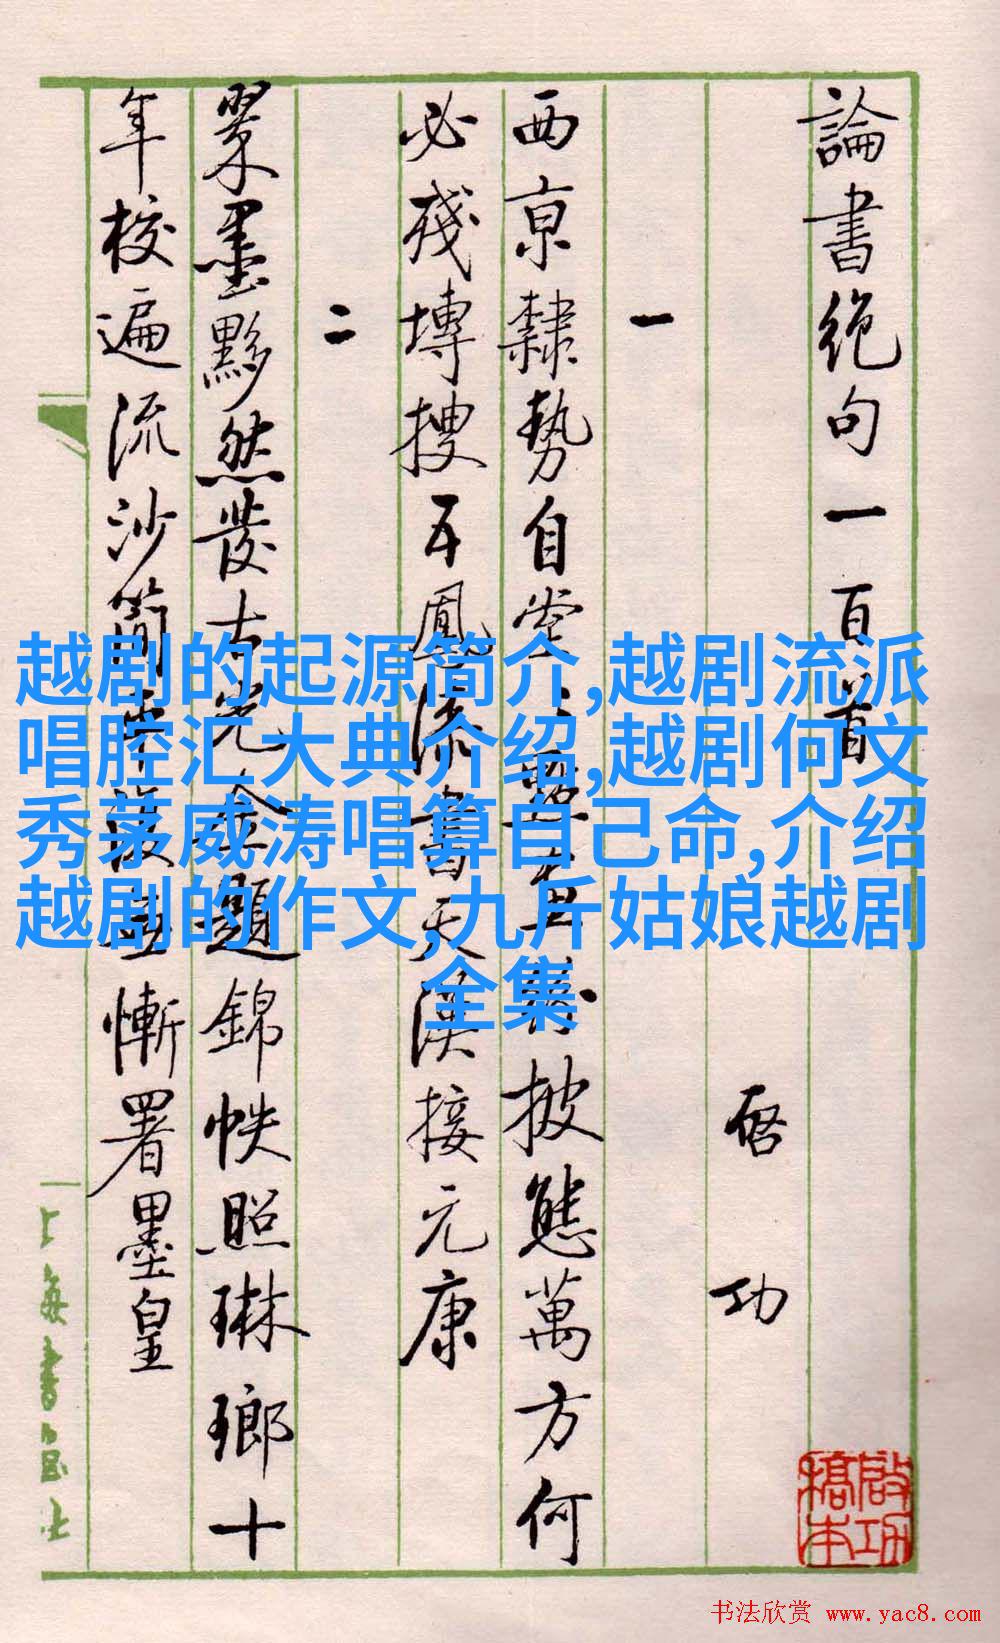 論書絕句一百首
啓功
一
西京隸勢自堂堂點畫紛披態萬方何
必殘塼搜五鳳漆書天漢接元康
二
翠墨黟然發古光金題錦帙照琳瑯十
年校遍流沙簡平復無慚署墨皇
越剧的起源简介,越剧流派
唱腔汇大典介绍,越剧何文
秀茅威涛唱算自己命,介绍
越剧的作文,九斤姑娘越剧
全集
上海書画社
书法欣赏 www.yac8.com